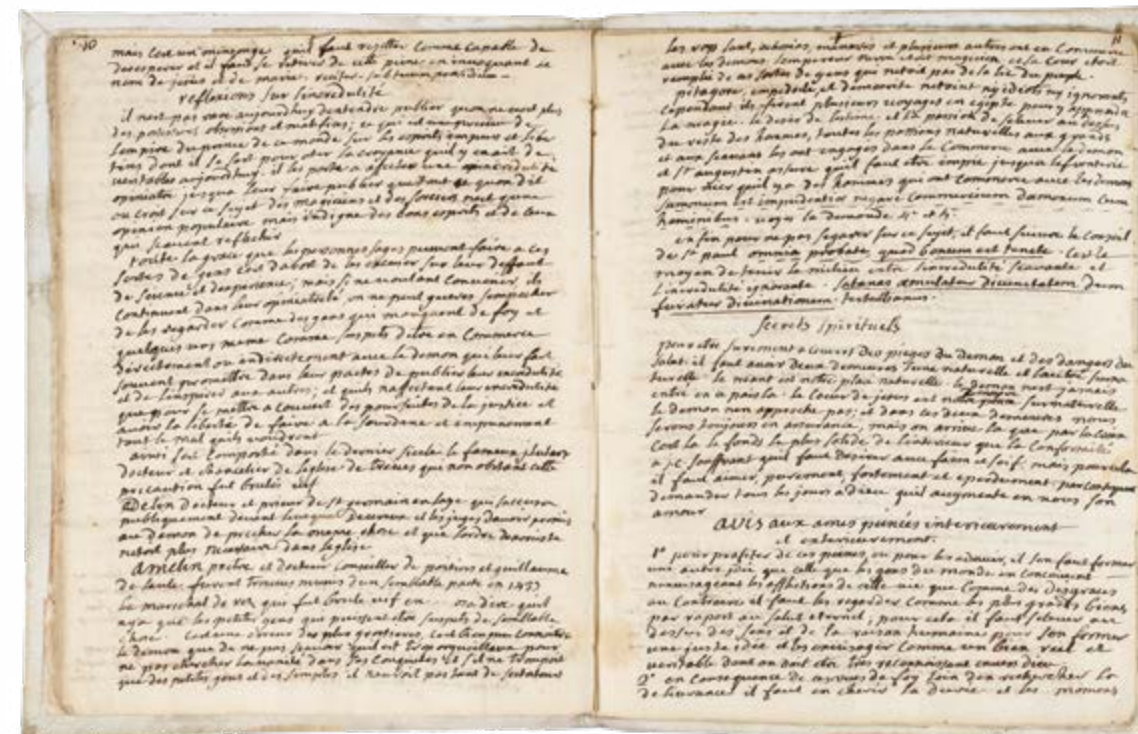 10
mais c'est un mensonge quil faut rejetter comme capable de
desesperer et il faut se retirer de cette peine en invoquant le
nom de jesus et de marie, reciter sub tuum præsidium
reflexions sur lincredulité
il nest pas rare aujourdhuy dentendre publier quon ne croit plus
des possessions obsessions et malefices; ce qui est une preuve de
lempire du prince de ce monde sur les esprits impurs et liber
tins dont il se sert pour oter la croyance quil y en ait de
veritables aujourdhuy. il les porte a affecter une incredulité
opiniatre jusqua leur faire publier que tout ce quon dit
ou croit sur ce sujet des magiciens et des sorciers nest quune
opinion populaire mais indigne des bons esprits et de ceux
qui scavent reflechir
toute la grace que les personnes sages peuvent faire a ces
sortes de gens c'est dabord de les excuser sur leur deffaut
de science et dexperience; mais si ne voulant convenir, ils
continuent dans leur opiniatreté on ne peut gueres sempecher
de les regarder comme des gens qui manquent de foy et
quelques uns meme comme suspects detre en commerce
directement ou indirectement avec le demon que leur fait
souvent promettre dans leurs pactes de publier leur incredulité
et de linspirer aux autres; et quils naffectent leur incredulité
que pour se mettre a couvert des poursuites de la justice et
avoir la liberté de faire a la sourdine et impunement
tout le mal quils voudront
ainsi sest comporté dans le dernier siecle le fameux
docteur et chancelier de leglise de treves que non obstant cette
precaution fut brulé vif
Edelin docteur et prieur de st germain en laye qui saccusa
publiquement devant leveque devreux et les juges davoir promis
au demon de precher la meme chose et que lordre
netoit plus dans leglise
Amelin pretre et docteur conseiller de poitiers et guillaume
de furent trouvés munis dun semblable pacte en 1453
le marechal de rez qui fut brulé vif en on a dire quil
nya que les petites gens qui puissent etre suspects de semblable
chose cest une erreur des plus grossieres, cest bien peu connoitre
le demon que de ne pas scavoir quil est trop orgueilleux pour
ne pas chercher la vanité dans ses conquetes et sil ne trompoit
que des petites gens et des simples il nauroit pas tant de sectateurs
11
les rois saul, achasias, manassés et plusieurs autres ont eu commerce
avec les demons. lempereur neron etoit magicien et sa cour etoit
remplie de ces sortes de gens qui netoit pas de la lie du peuple.
pitagore, empedocle et democrite netoient ny idiots ny ignorants
cependant ils firent plusieurs voyages en egipte pour y apprendre
la magie. le desir de la science et la passion de selever au dessus
du reste des hommes, toutes les passions naturelles aux grands
et aux scavans les ont engagés dans le commerce avec le demon
et st augustin assure quil faut etre impie jusqua leffronterie
pour nier quil y a des hommes qui ont commerce avec les demons
summum est impudentiæ negare commercium dæmonum cum
hominibus. voyez la demande 4e et 5.
enfin pour ne pas segarer sur ce sujet, il faut suivre le conseil
de st paul omnia probate, quod bonum est tenete. cest le
moyen de tenir le milieu entre lincredulité scavante et
lincredulité ignorante. satanas æmulatur divinitatem dum
furatur divinationem. tertullianus.
secrets spirituels
pour etre surement a couvert des pieges du demon et des dangers du
salut il faut avoir deux demeures lune naturelle et lautre surna
turelle. le neant est notre place naturelle. le demon nest jamais
entré en ce pais la. le coeur de jesus est notre place surnaturelle
le demon nen approche pas; et dans ces deux demeures nous
serons toujours en assurance, mais on narrive la que par la croix
cest la le fonds le plus solide de linterieur que la conformité
a j.c. souffrant quil faut desirer avec faim et soif. mais pour cela
il faut aimer, purement, fortement et eperduement par consequent
demander tous les jours a dieu quil augmente en nous son
amour
AVIS aux ames peinées interieurement
et exterieurement.
1° pour profiter de ces peines, ou pour les adoucir, il sen faut former
une autre idée que celle que les gens du monde en concoivent
nenvisageant les afflictions de cette vie que comme des disgraces
au contraire il faut les regarder comme les plus grands biens
par raport au salut eternel; pour cela il faut selever au
dessus des sens et de la raison humaine pour sen former
une juste idée et les envisager comme un bien réel et
veritable dont on doit etre tres reconnoissant envers dieu
2° en consequence de ces vues de foy loin den rechercher la
delivrance il faut en cherir la durée et les momens